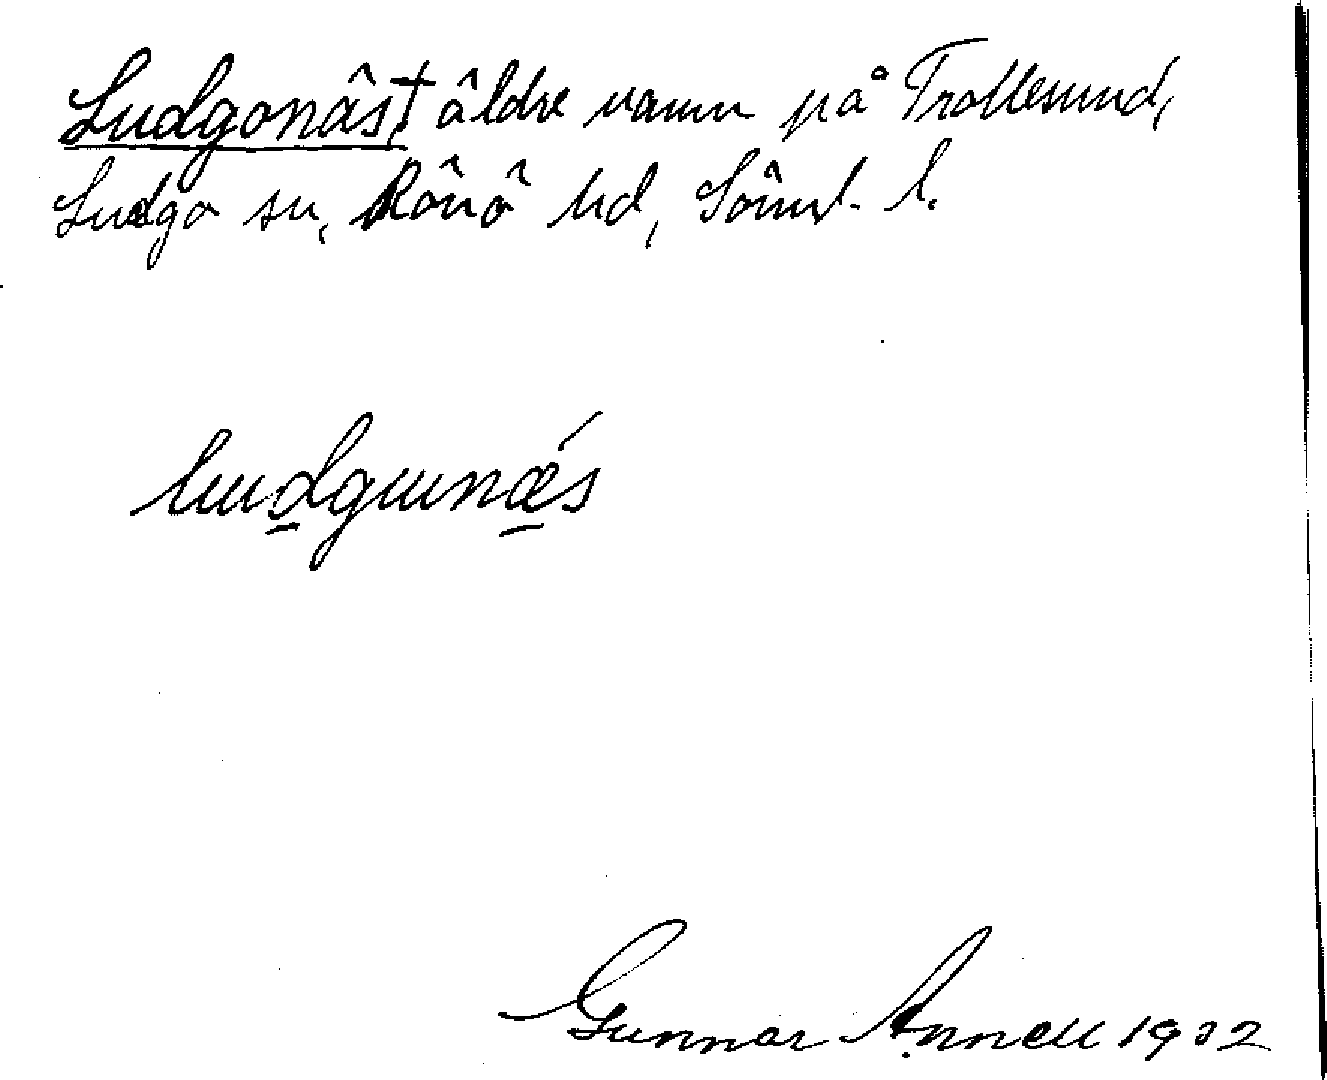 Ludgonäs† äldre namn på Trollesund,
Ludgo sn, Rönö hd, Söml. l.
ludgunǽs
Gunnar Annell 1932